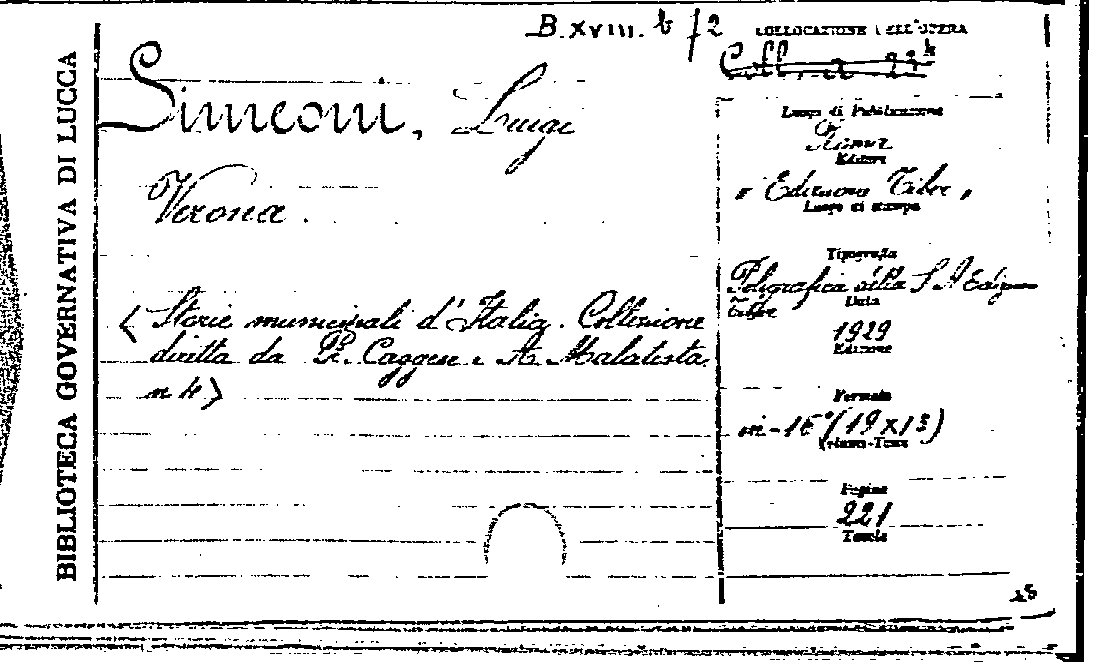 BIBLIOTECA GOVERNATIVA DI LUCCA
B. XVIII. b f2
COLLOCAZIONE DELL'OPERA
Simeoni, Luigi
Verona.
< Storie municipali d'Italia. Collezione
diretta da R. Caggese e A. Malatesta.
n 4 >
Luogo di Pubblicazione
Roma
Editore
"Edizioni Tibre"
Luogo di stampa
Tipografia
Poligrafica della S A Edizioni
Tibre
Data
1929
Edizione
Formato
in-16° (19x13)
Volumi-Tomi
Pagine
221
Tavole